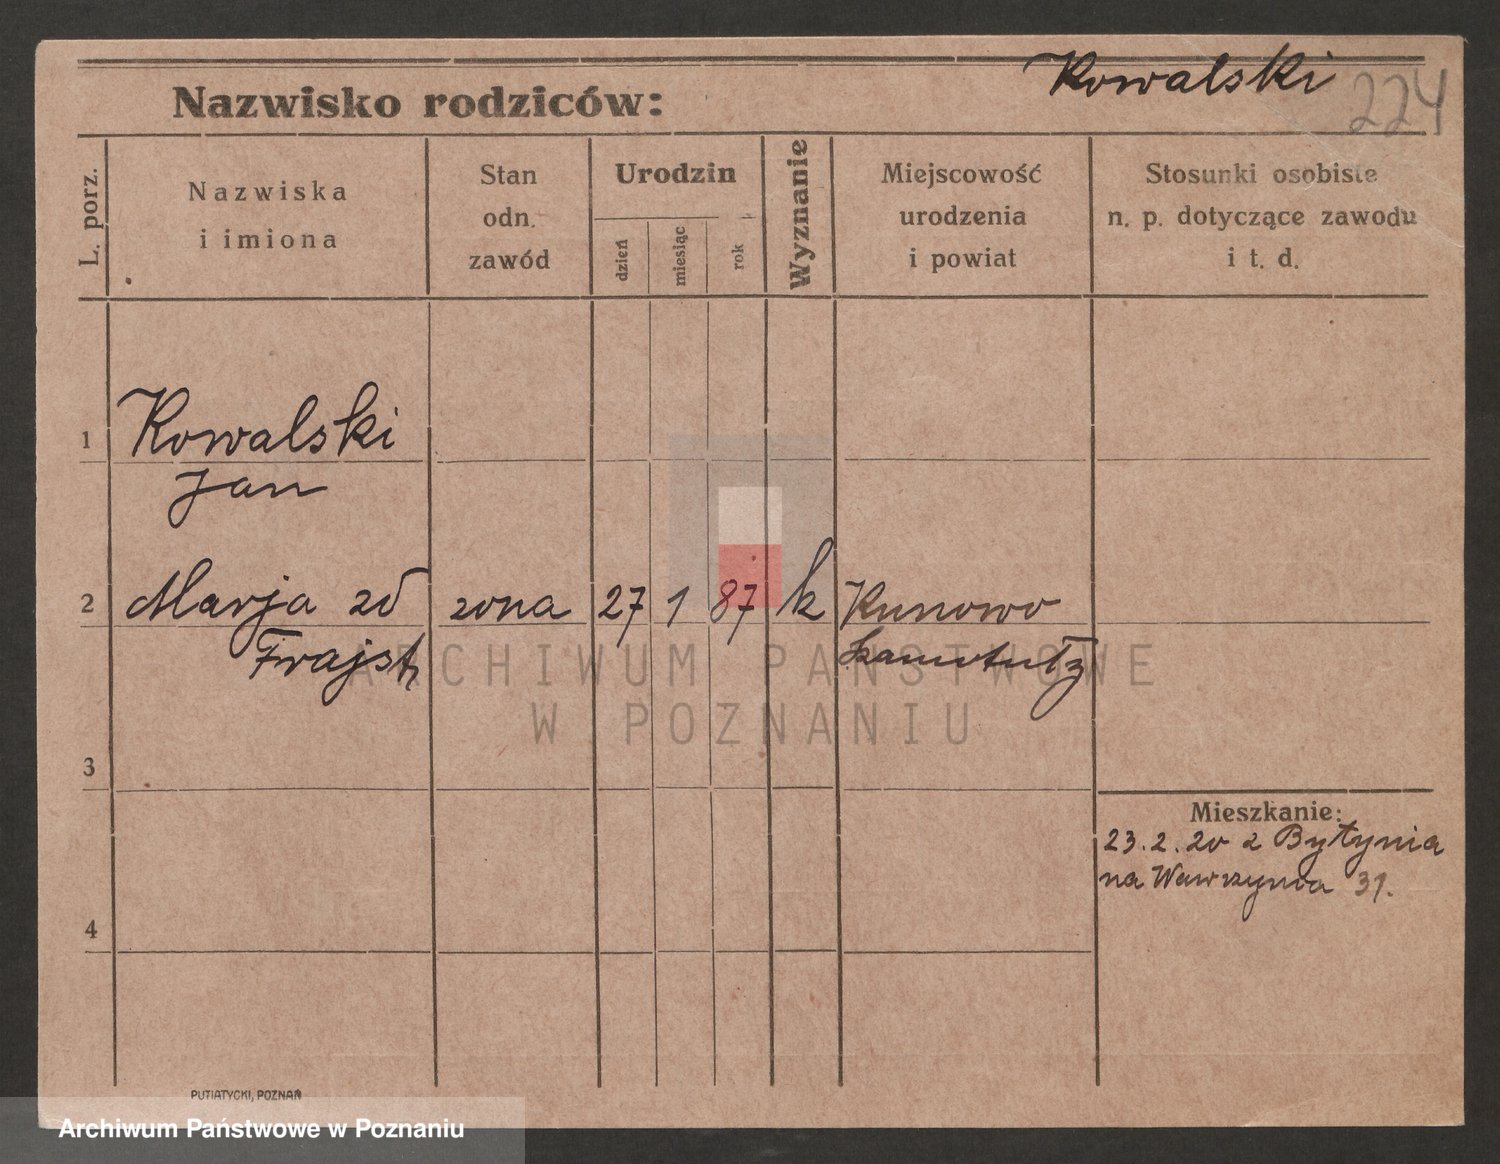 Kowalski
224
Nazwisko rodziców:
L. porz.
Nazwiska
i imiona
Stan
odn.
zawód
Urodzin
dzień
miesiąc
rok
Wyznanie
Miejscowość
urodzenia
i powiat
Stosunki osobiste
n. p. dotyczące zawodu
i t. d.
1
Kowalski
Jan
2
Marja zd
Frajsth
żona
27
1
87
k
Kunowo
3
4
Mieszkanie:
23.2.20 z Bytynia
na Wawrzynca 31.
ARCHIWUM PAŃSTWOWE
W POZNANIU
PUTIATYCKI, POZNAŃ
Archiwum Państwowe w Poznaniu